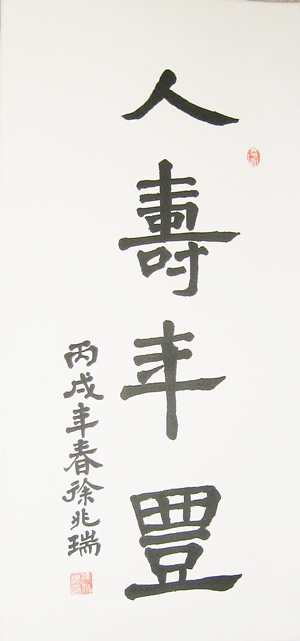 人壽年豐
丙戌年春徐兆瑞